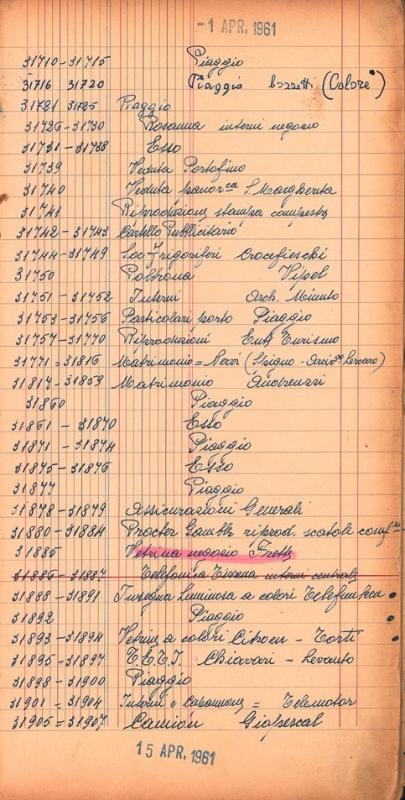 -1 APR. 1961
31710-31715 Piaggio
31716 31720 Piaggio bozzetti (Colore)
31721 31725 Piaggio
31726-31730 Rosanna interni negozio
31731-31738 Esso
31739 Veduta Portofino
31740 Veduta panor.ca S. Margherita
31741 Riproduzione stampa campestre
31742-31743 Cartello Pubblicitario
31744-31749 Soc. Frigoriferi Crocefieschi
31750 Poltrona Vipol
31751-31752 Interni Arch. Minuto
31753-31756 Particolari porto Piaggio
31757-31770 Riproduzioni Ente Turismo
31771=31816 Matrimonio = (Spigno - Lercaro)
31817-31859 Matrimonio
31860 Piaggio
31861-31870 Esso
31871-31874 Piaggio
31875-31876 Esso
31877 Piaggio
31878-31879 Assicurazioni Generali
31880-31884 Procter Gamble riprod. scatole
31885 Vetrina negozio Frette
31886-31887 Telefonica Tirrena interni centrale
31888-31891 Insegna luminosa a colori Telefunken
31892 Piaggio
31893-31894 Vetrine a colori Citroen - Torti
31895-31897 T.E.T.I. Chiavari - Levanto
31898-31900 Piaggio
31901=31904 Interni e Capannone = Telemotor
31905=31907 Camion
15 APR. 1961